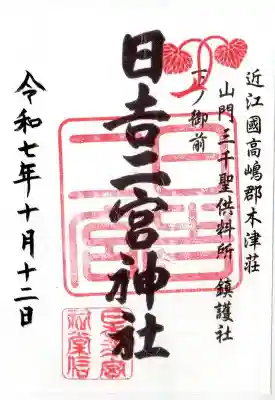 近江國高嶋郡木津荘
山門三千聖供料所 鎮護社
下ノ御前
日吉二宮神社
令和七年十月十二日